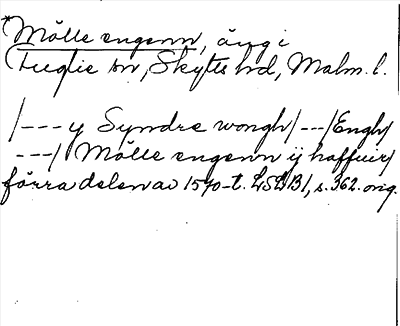 *Mölle engenn, äng i
Fuglie sn, Skytts hd, Malm. l.
/--- y Syndre wongh/---/Engh/
---/ Mölle engenn ij haffuir/
förra delen av 1570-t. LSLB1, s. 362. orig.